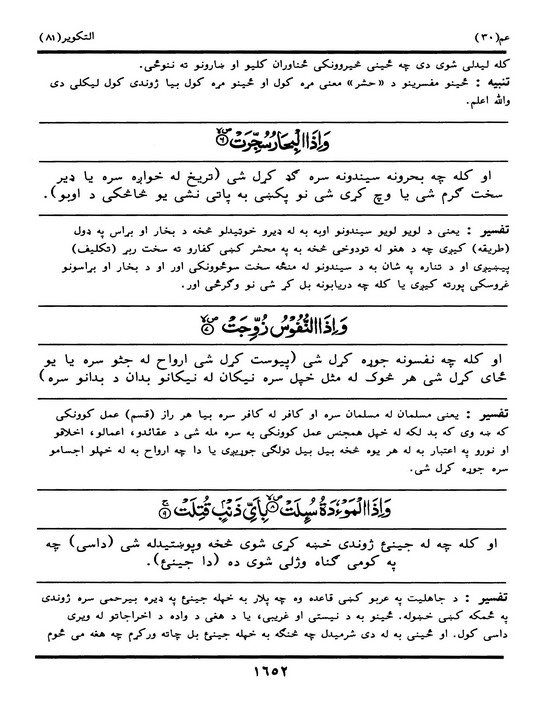 عم(٣٠)
التكوير(٨١)
كله ليدلى شوى دى چه ځينى ځيروونكى ځناوران كليو او ښارونو ته ننوځى.
تنبيه : ځينو مفسرينو د «حشر» معنى مره كول او ځينو مره كول بيا ژوندى كول ليكلى دى
والله اعلم.
وَاِذَا الْبِحَارُ سُجِّرَتْ ۝٦
او كله چه بحرونه سيندونه سره ګډ كړل شى (تريخ له خواږه سره يا ډير
سخت ګرم شى يا وچ كړى شى نو پكښى به پاتى نشى يو څاڅكى د اوبو).
تفسير : يعنى د لويو لويو سيندونو اوبه به له ډيرو خوټيدلو څخه د بخار او براس په ډول
(طريقه) كيږى چه د هغو له تودوخى څخه به په محشر كښى كفارو ته سخت ربړ (تكليف)
پيښيږى او د تناره په شان به د سيندونو له منځه سخت سوځوونكى اور او د بخار او براسونو
غروسكى پورته كيږى يا كله چه دريابونه بل كړ شى نو وګرځى اور.
وَاِذَا النُّفُوْسُ زُوِّجَتْ ۝٧
او كله چه نفسونه جوړه كړل شى (پيوست كړل شى ارواح له جثو سره يا يو
ځاى كړل شى هر څوک له مثل خپل سره نيكان له نيكانو بدان د بدانو سره)
تفسير : يعنى مسلمان له مسلمان سره او كافر له كافر سره بيا هر راز (قسم) عمل كوونكى
كه ښه وى كه بد لكه له خپل همجنس عمل كوونكى به سره مله شى د عقائدو، اعمالو، اخلاقو
او نورو په اعتبار به له هر يوه څخه بيل بيل ټولګى جوړيږى يا دا چه ارواح به له خپلو اجسامو
سره جوړه كړل شى.
وَاِذَا الْمَوْءٗدَةُ سُىِٕلَتْ ۝٨ بِاَىِّ ذَنْۢبٍ قُتِلَتْ ۝٩
او كله چه له جينئ ژوندى خښه كړى شوى څخه وپوښتيدله شى (داسى) چه
په كومى ګناه وژلى شوى ده (دا جينئ).
تفسير : د جاهليت په عربو كښى قاعده وه چه پلار به خپله جينئ په ډيره بيرحمى سره ژوندى
په ځمكه كښى خښوله. ځينو به د نيستى او غريبى، يا د هغى د واده د اخراجاتو له ويرى
داسى كول. او ځينى به له دى شرميدل چه څنګه به خپله جينئ بل چاته وركړم چه هغه مى څوم
١٦٥٢